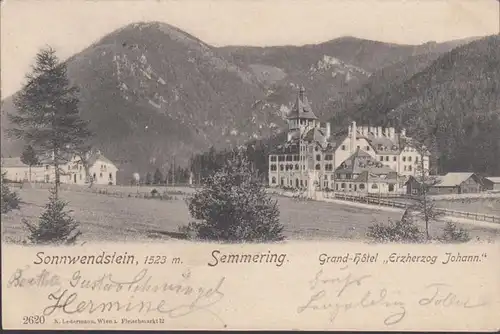 Sonnwendstein, 1523 m. Semmering. Grand-Hôtel „Erzherzog Johann."
Bertha Gustav
Hermine
Leopoldine
2620 N. Ledermann, Wien I. Fleischmarkt 12